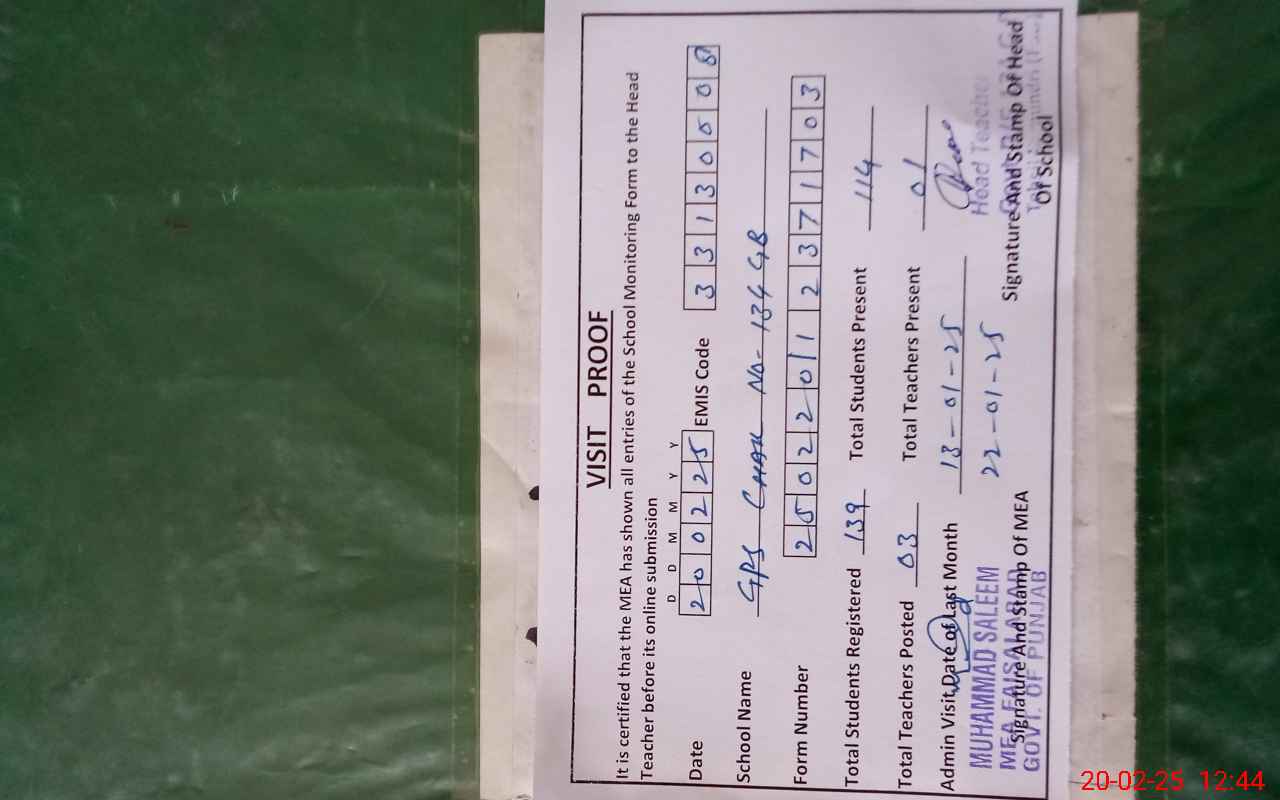 VISIT PROOF
It is certified that the MEA has shown all entries of the School Monitoring Form to the Head
Teacher before its online submission
D D M M Y Y
Date 200225 EMIS Code 33130008
School Name GPS CHAK NO- 134 GB
Form Number 250220112371703
Total Students Registered 139 Total Students Present 114
Total Teachers Posted 03 Total Teachers Present 01
Admin Visit Date of Last Month 13-01-25
22-01-25
MUHAMMAD SALEEM
MEA FAISALABAD
GOVT. OF PUNJAB
Signature And Stamp Of MEA
Head Teacher
Signature And Stamp Of Head
Of School
20-02-25 12:44